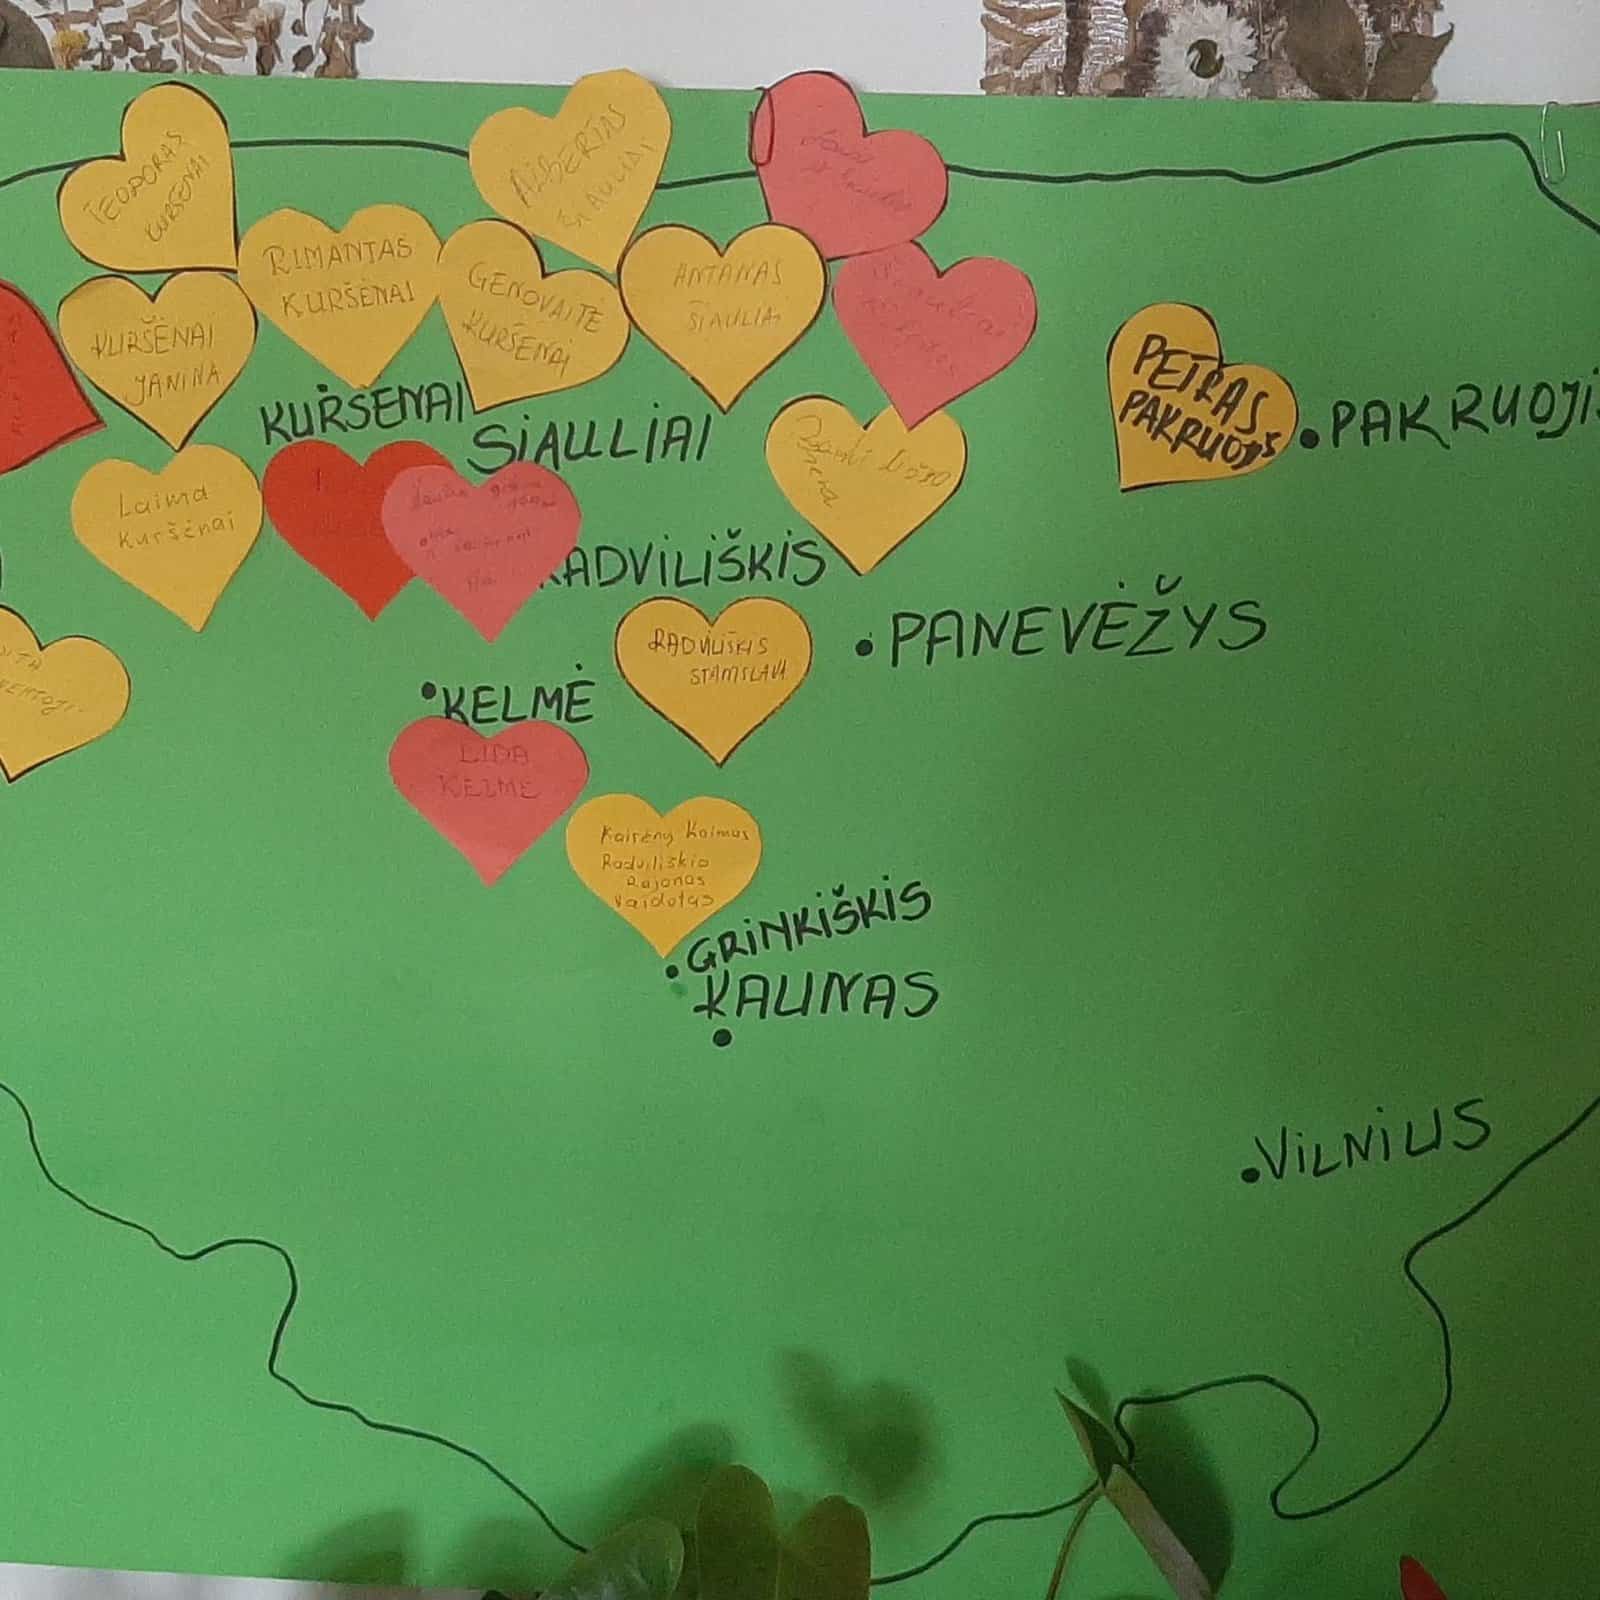 TEODORAS
KURŠĖNAI
ALBERTAS
ŠIAULIAI
RIMANTAS
KURŠĖNAI
GENOVAITĖ
KURŠĖNAI
ANTANAS
ŠIAULIAI
KURŠĖNAI
JANINA
PETRAS
PAKRUOJIS
PAKRUOJIS
KURŠĖNAI
SIAULIAI
Laima
Kuršėnai
RADVILIŠKIS
RADVILIŠKIS
STANISLAVA
PANEVĖŽYS
KELMĖ
LIDA
KELMĖ
Kairėnų Kaimas
Radviliškio
Rajonas
Vaidotas
GRINKIŠKIS
KAUNAS
VILNIUS